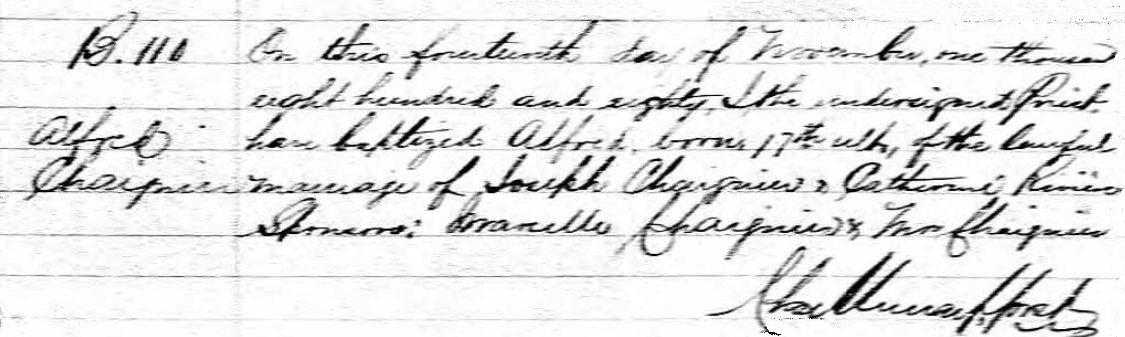 B. 110 On this fourteenth day of November, one thousand
eight hundred and eighty, I the undersigned Priest
Alfred have baptized Alfred, born 17th ult, of the lawful
Chaignier marriage of Joseph Chaignier & Catherine
Sponsors: Chaignier & Mrs Chaignier
Murray, Priest